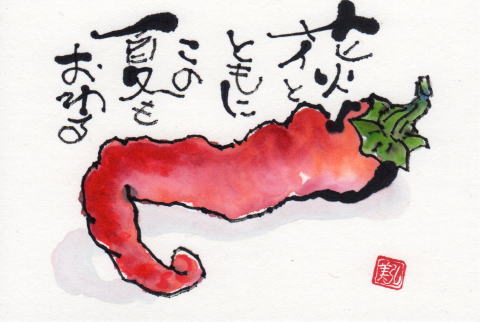 花火と
ともに
この
夏も
おわる